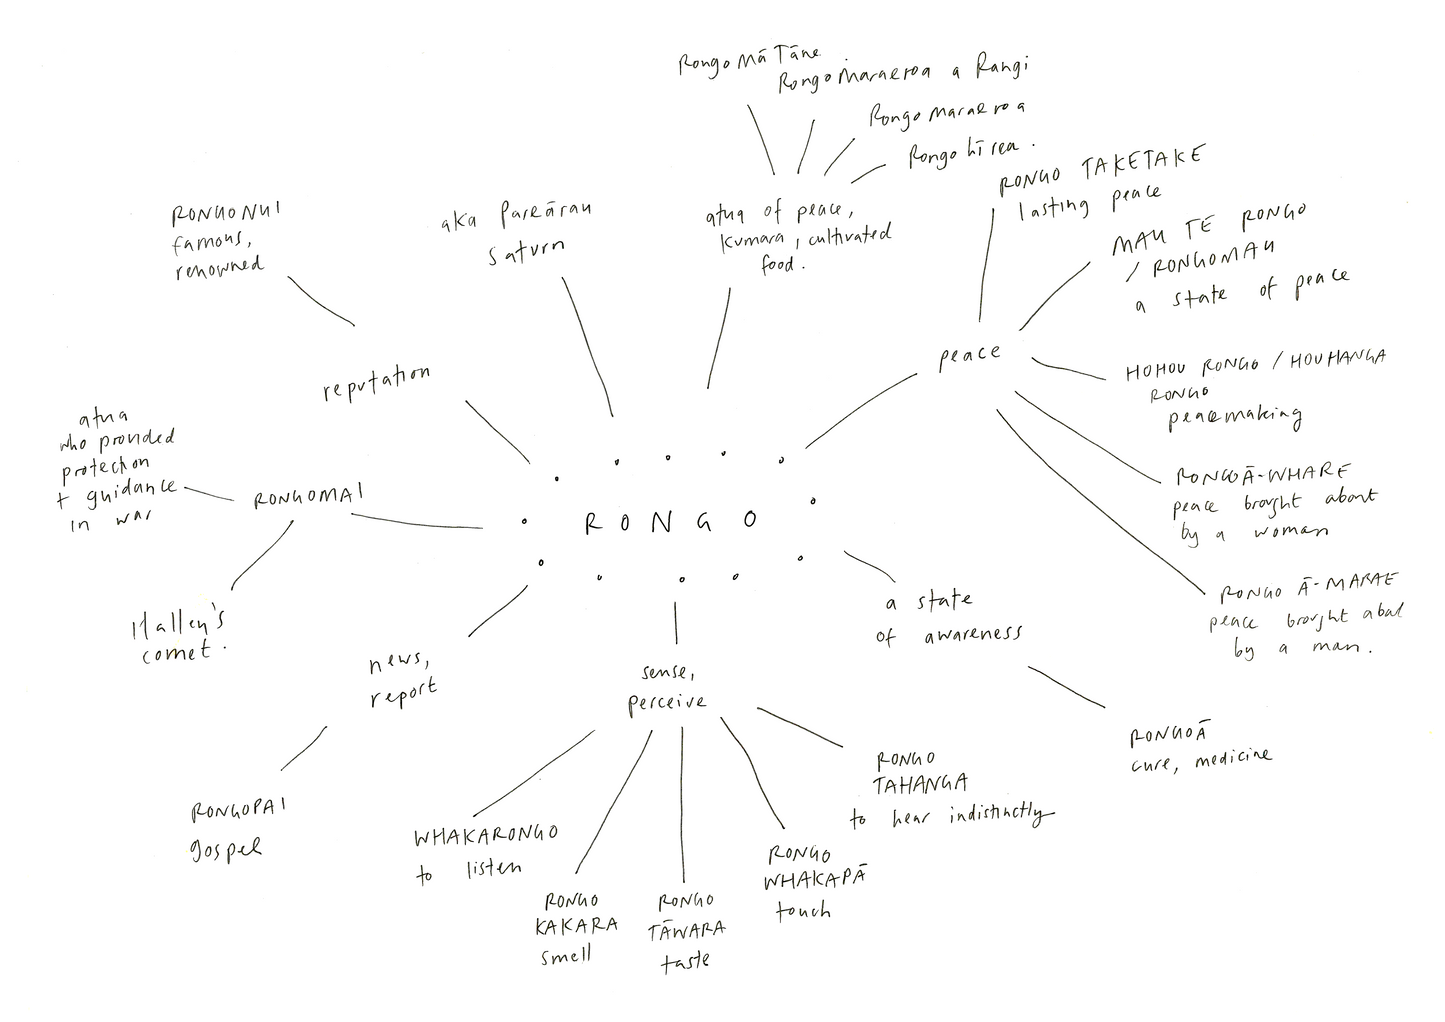 Rongo Mā Tāne
Rongo Maraeroa a Rangi
Rongo maraeroa
Rongo hīrea.
atua of peace,
kumara, cultivated
food.
aka Pareārau
saturn
RONGONUI
famous,
renowned
reputation
RONGO TAKETAKE
lasting peace
MAU TE RONGO
/ RONGOMAU
a state of peace
peace
HOHOU RONGO / HOUHANGA
RONGO
peacemaking
RONGOĀ-WHARE
peace brought about
by a woman
RONGO Ā-MARAE
peace brought about
by a man.
atua
who provided
protection
+ guidance
in war
RONGOMAI
Halley's
comet.
RONGO
a state
of awareness
RONGOĀ
cure, medicine
news,
report
RONGOPAI
gospel
sense,
perceive
WHAKARONGO
to listen
RONGO
KAKARA
smell
RONGO
TĀWARA
taste
RONGO
WHAKAPĀ
touch
RONGO
TAHANGA
to hear indistinctly